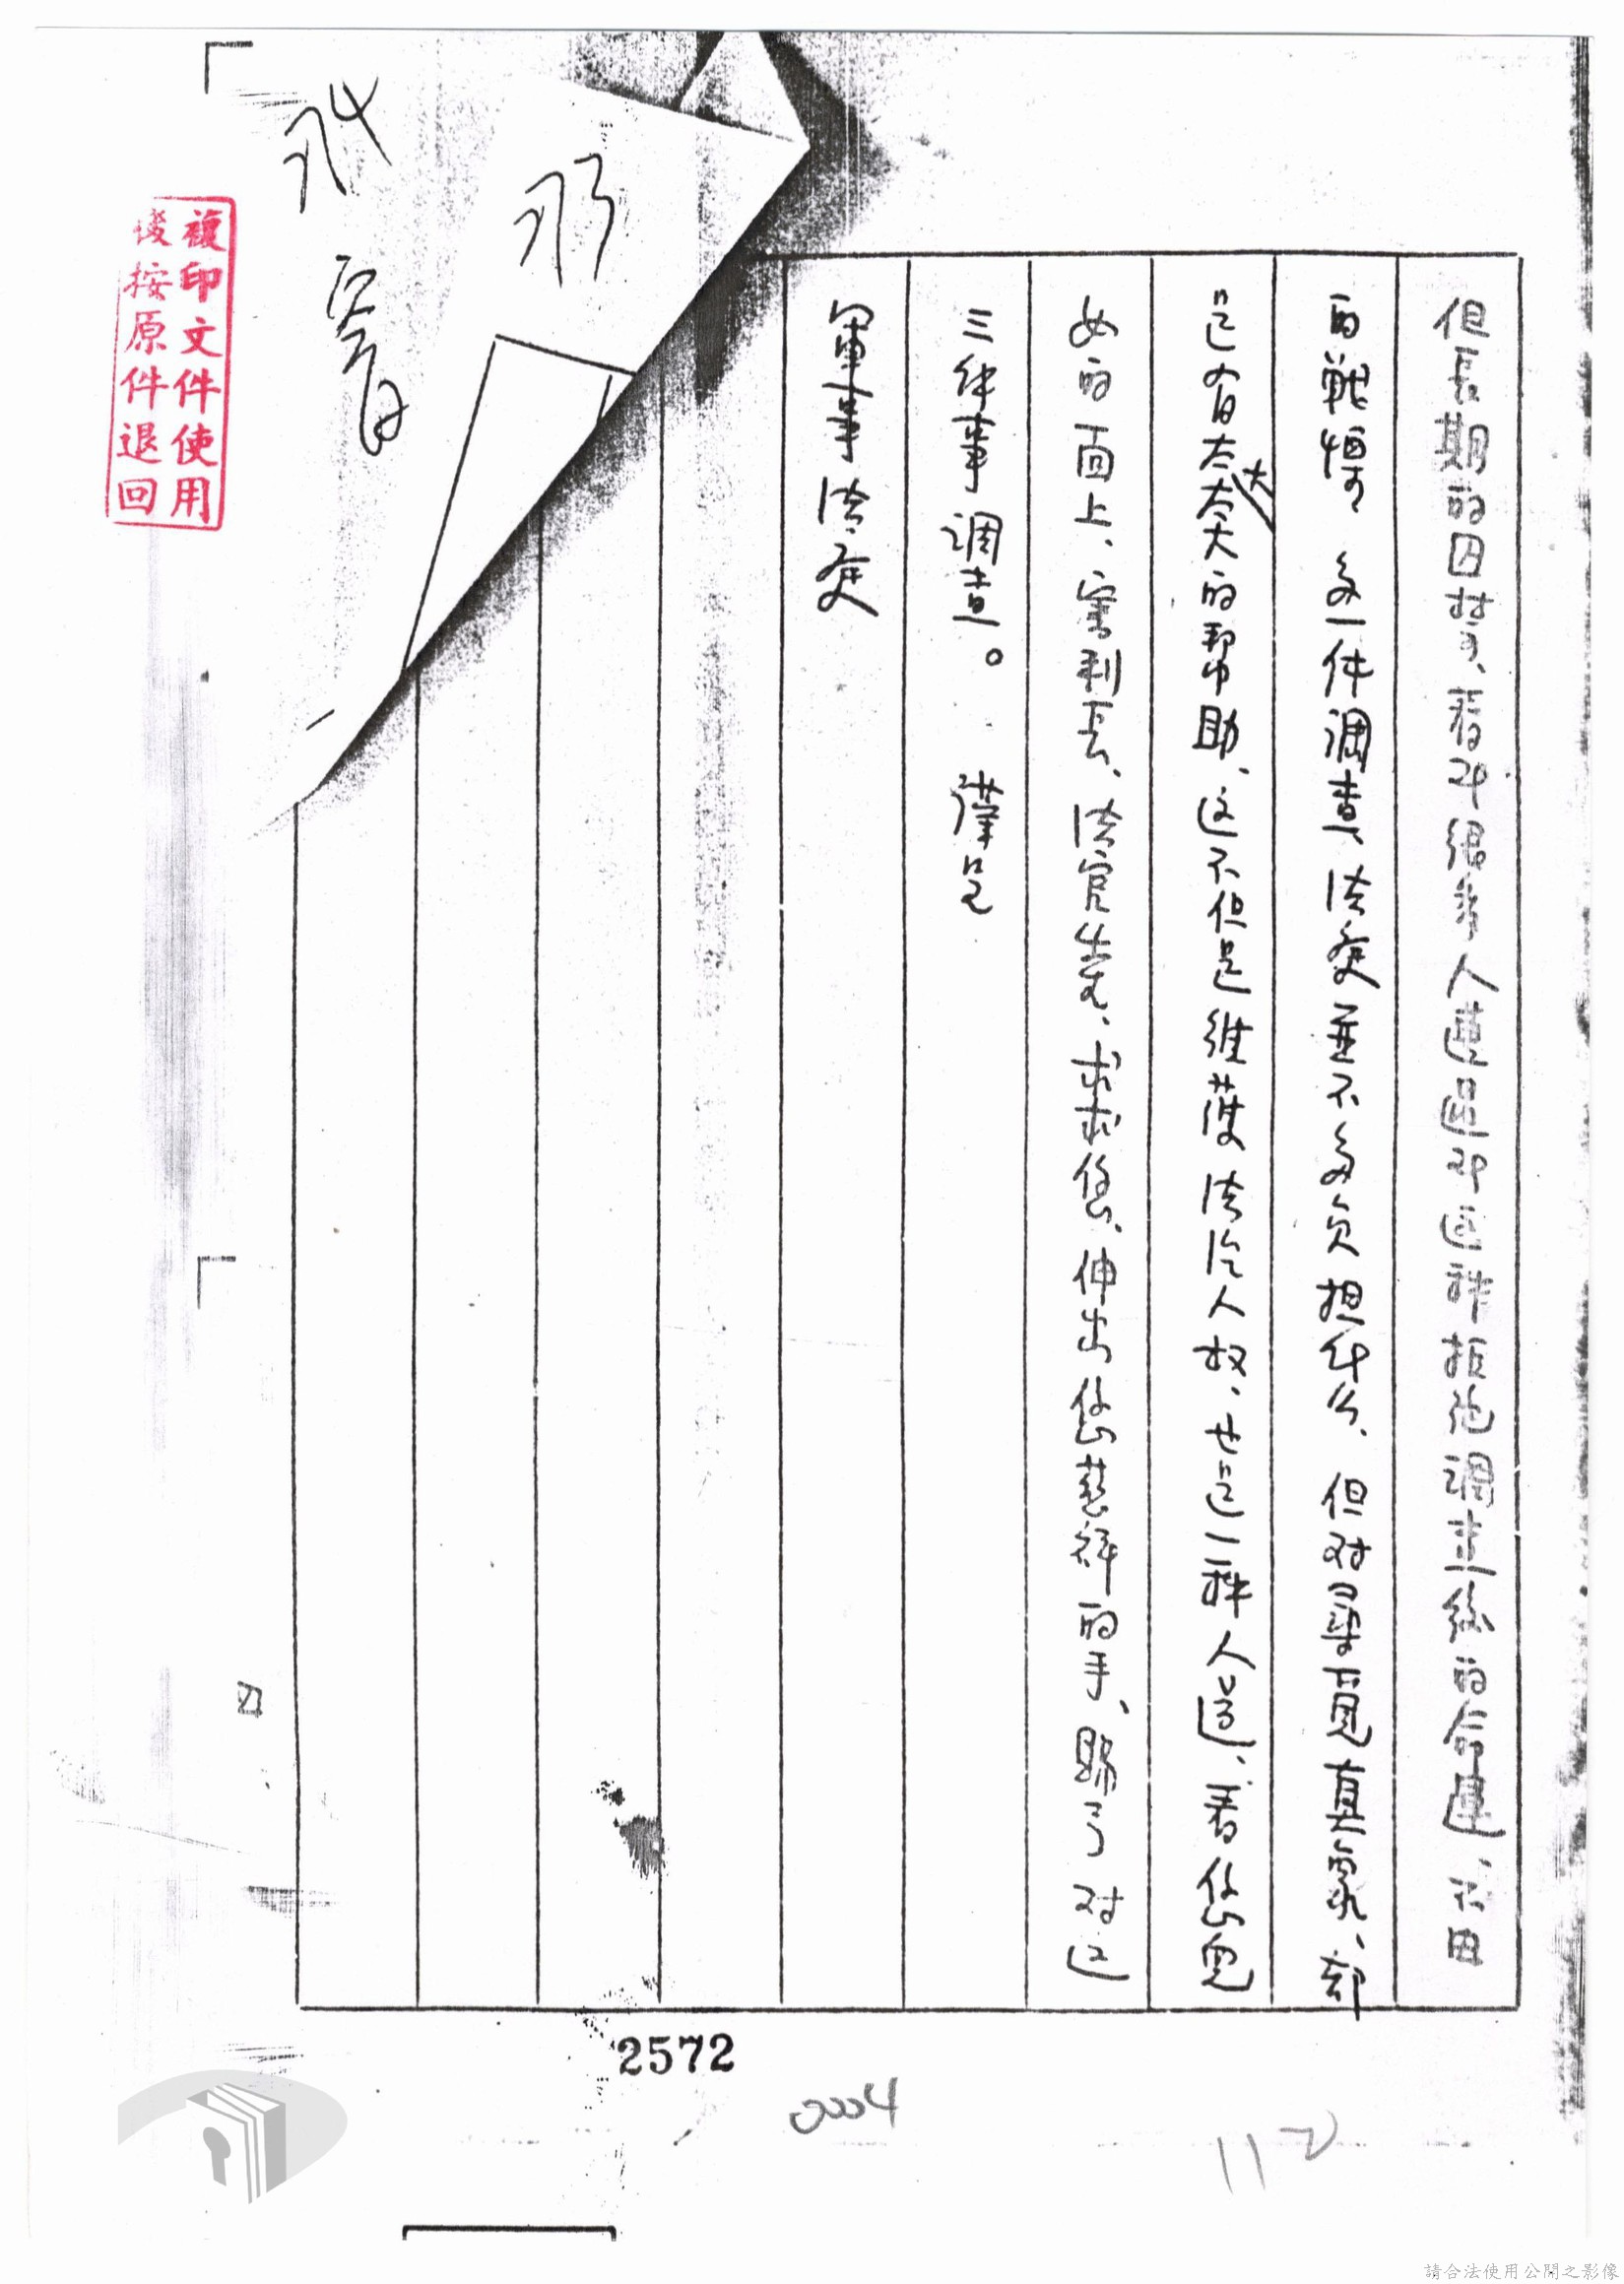 但長期的囚禁、看过很多人遭遇过这种拒绝調查的命運、不由
的戰慄、多一件調查、法庭並不多负担什么、但对尋覓真象、却
是有太大的帮助、这不但是維護法治人权、也是一种人道、看您兒
女的面上、審判長、法官先、求求您、伸出您慈祥的手、賜予对这
三件事調查。 谨呈
軍事法庭
複印文件使用
後按原件退回
2572
0004
112
請合法使用公開之影像